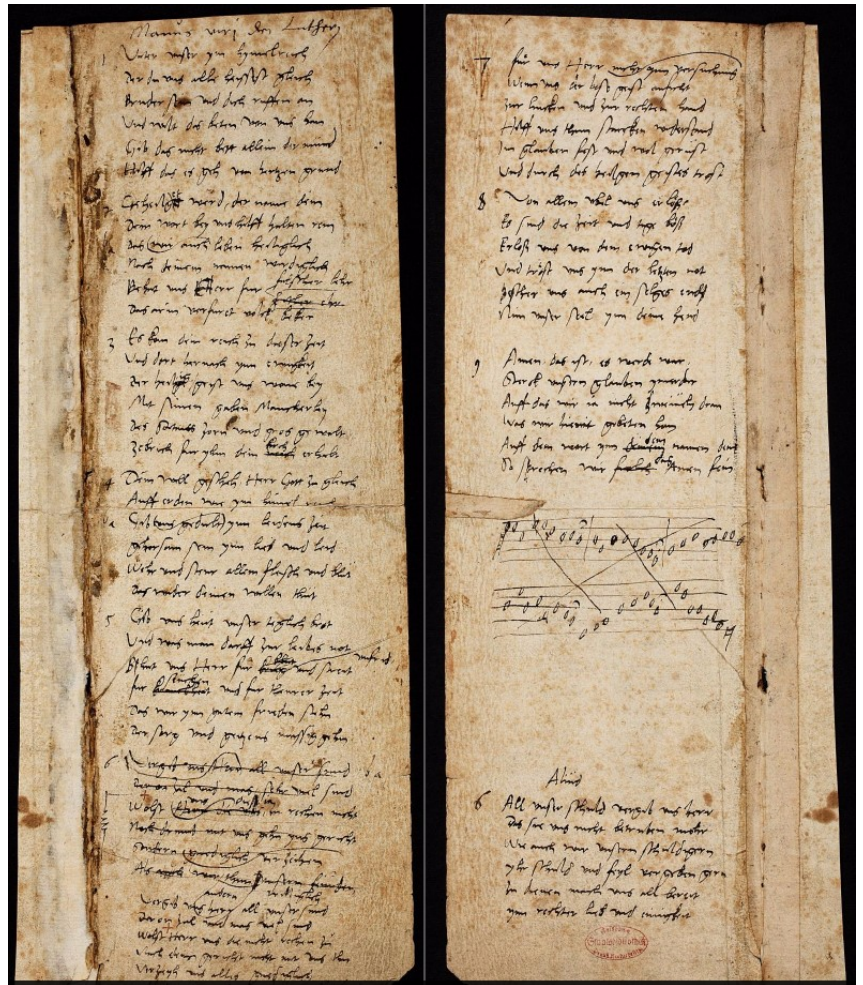 Manus viri dei Lutherj
1 Vater unser ym hymelreich
Der du uns alle heissest gleich
Bruder sein und dich ruffen an
Und wilt das beten von uns han
Gib das nicht bett allein der mund
Hilff das es geh von hertzen grund
2 Geheiligt werd der name dein
Dein wort bey uns hilff halten rein
Das wir auch leben heiliglich
Nach deinem namen wirdiglich
Behut uns Herr fur falscher lehr
Das arm verfuret volck beker
3 Es kom dein reich zu dieser zeit
Und dort hernach ynn ewigkeit
Der heilig geist uns wone bey
Mit seinen gaben mancherley
Des Satans zorn und gros gewalt
Zebrich fur yhm dein kirch erhalt
4 Dein will gescheh Herr Gott zu gleich
Auff erden wie ym himel
Gib uns gedult ynn leidens zeit
Gehorsam sein ynn lieb und leid
Wehr und steur allem fleisch und blut
Das wider deinen willen thut
5 Gib uns heut unser teglich brot
Und was man darff zur leibs not
Bhut uns Herr fur und streit
fur seuchen und fur theurer zeit
Das wir ynn gutem frieden stehn
Der sorg und geitzens mussig gehn
6 Vergib uns Herr all unser sund
Der on zal und
Wolst rechen nicht
Noch

Als
Vergib uns Herr all unser sund
Der on zal und
Wolst Herr uns die nicht rechen zu
Nach mit uns thu
Verzeyh uns alles
7 fur uns Herr nicht ynn versuchung
Wenn uns der bose geist anficht
Zur lincken und zur rechten hand
Hilff uns thun starcken widerstand
Im glauben fest und wol gerust
Und durch des heiligen geistes trost
8 Von allem ubel uns erlose
Es sind die zeit und tage bose
Erlose uns von dem ewigen tod
Und trost uns ynn der letzten not
Bescher uns auch ein seliges end
Nim unser seel ynn deine hend
9 Amen, das ist, es werde war,
Sterck unsern glauben ymerdar
Auff das wir ia nicht zweiveln dran
Was wir hiemit gebeten han
Auff dein wort ynn dem namen dein
So sprechen wir das Amen fein
Aliud
6 All unser schuld vergib uns herr
Das sie uns nicht betruben mehr
Wie auch wir unsern schuldigern
yhr schuld und feyl vergeben gern
Zu dienen mach uns all bereit
ynn rechter lieb und einigkeit